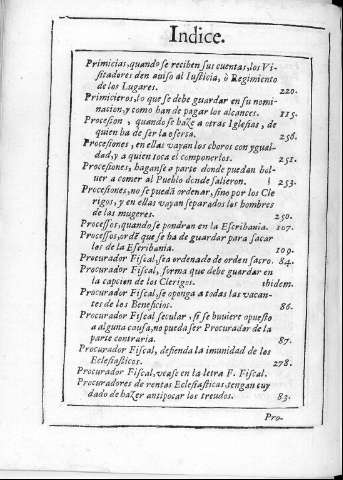 Indice.
Primicias, quando se reciben sus cuentas, los Vi-
sitadores den auiso al Iusticia, ò Regimiento
de los Lugares. 220.
Primicieros, lo que se debe guardar en su nomi-
nacion, y como han de pagar los alcances. 115.
Procesion, quando se haze a otras Iglesias, de
quien ha de ser la oferta. 258.
Procesiones, en ellas vayan los choros con ygual-
dad, y a quien toca el componerlos. 251.
Procesiones, haganse a parte donde puedan bol-
uer a comer al Pueblo donde salieron. 253.
Procesiones, no se puedã ordenar, sino por los Cle
rigos, y en ellas vayan separados los hombres
de las mugeres. 250.
Processos, quando se pondran en la Escribania. 107.
Processos, ordẽ que se ha de guardar para sacar
los de la Escribania. 109.
Procurador Fiscal, sea ordenado de orden sacro. 84.
Procurador Fiscal, forma que debe guardar en
la capcion de los Clerigos. ibidem.
Procurador Fiscal, se oponga a todas las vacan-
tes de los Beneficios. 86.
Procurador Fiscal secular, si se huuiere opuesto
a alguna causa, no pueda ser Procurador de la
parte contraria. 87.
Procurador Fiscal, defienda la imunidad de los
Eclesiasticos. 278.
Procurador Fiscal, vease en la letra F. Fiscal.
Procuradores de rentas Eclesiasticas, tengan cuy
dado de hazer antipocar los treudos. 83.
Pro-